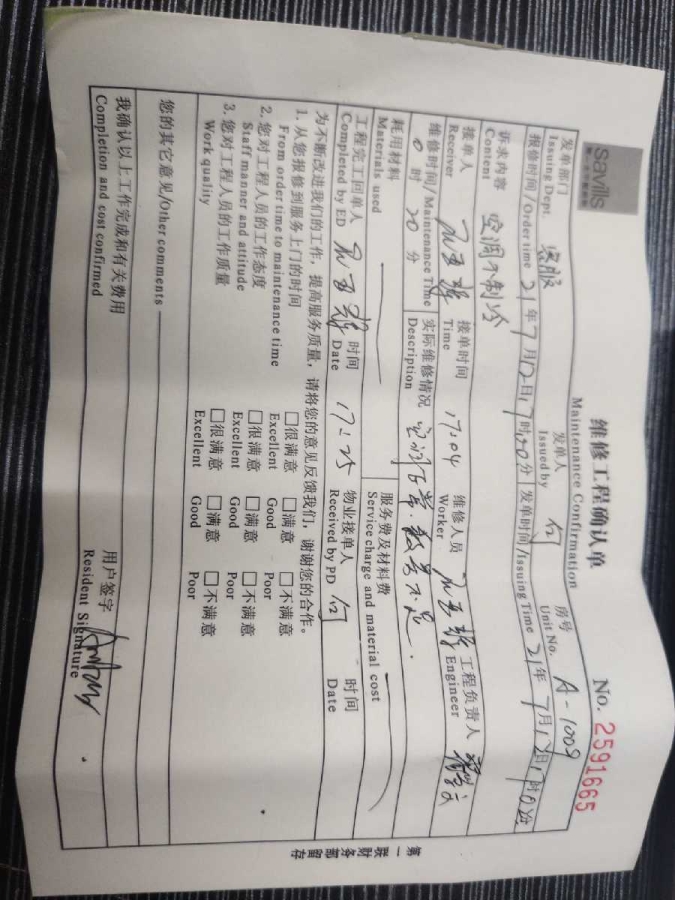 savills
维修工程确认单
Maintenance Confirmation
No. 2591665
发单部门 客服 发单人 房号 A-1009
Issuing Dept. Issued by Unit No.
报修时间/Order time 21年7月12日17时00分 发单时间/Issuing Time 21年7月1日17时0分
诉求内容 空调不制冷
Content
接单人 接单时间 17:04 维修人员 工程负责人
Receiver Time Worker Engineer
维修时间/Maintenance Time 实际维修情况 空调正常.
0时20分 Description
耗用材料 服务费及材料费
Materials used Service charge and material cost
工程完工回单人 时间 17:25 物业接单人 时间
Completed by ED Date Received by PD Date
为不断改进我们的工作，提高服务质量，请将您的意见反馈我们，谢谢您的合作。
1. 从您报修到服务上门的时间 □很满意 □满意 □不满意
From order time to maintenance time Excellent Good Poor
2. 您对工程人员的工作态度 □很满意 □满意 □不满意
Staff manner and attitude Excellent Good Poor
3. 您对工程人员的工作质量 □很满意 □满意 □不满意
Work quality Excellent Good Poor
您的其它意见/Other comments
我确认以上工作完成和有关费用 用户签字
Completion and cost confirmed Resident Signature
第一联财务部留存